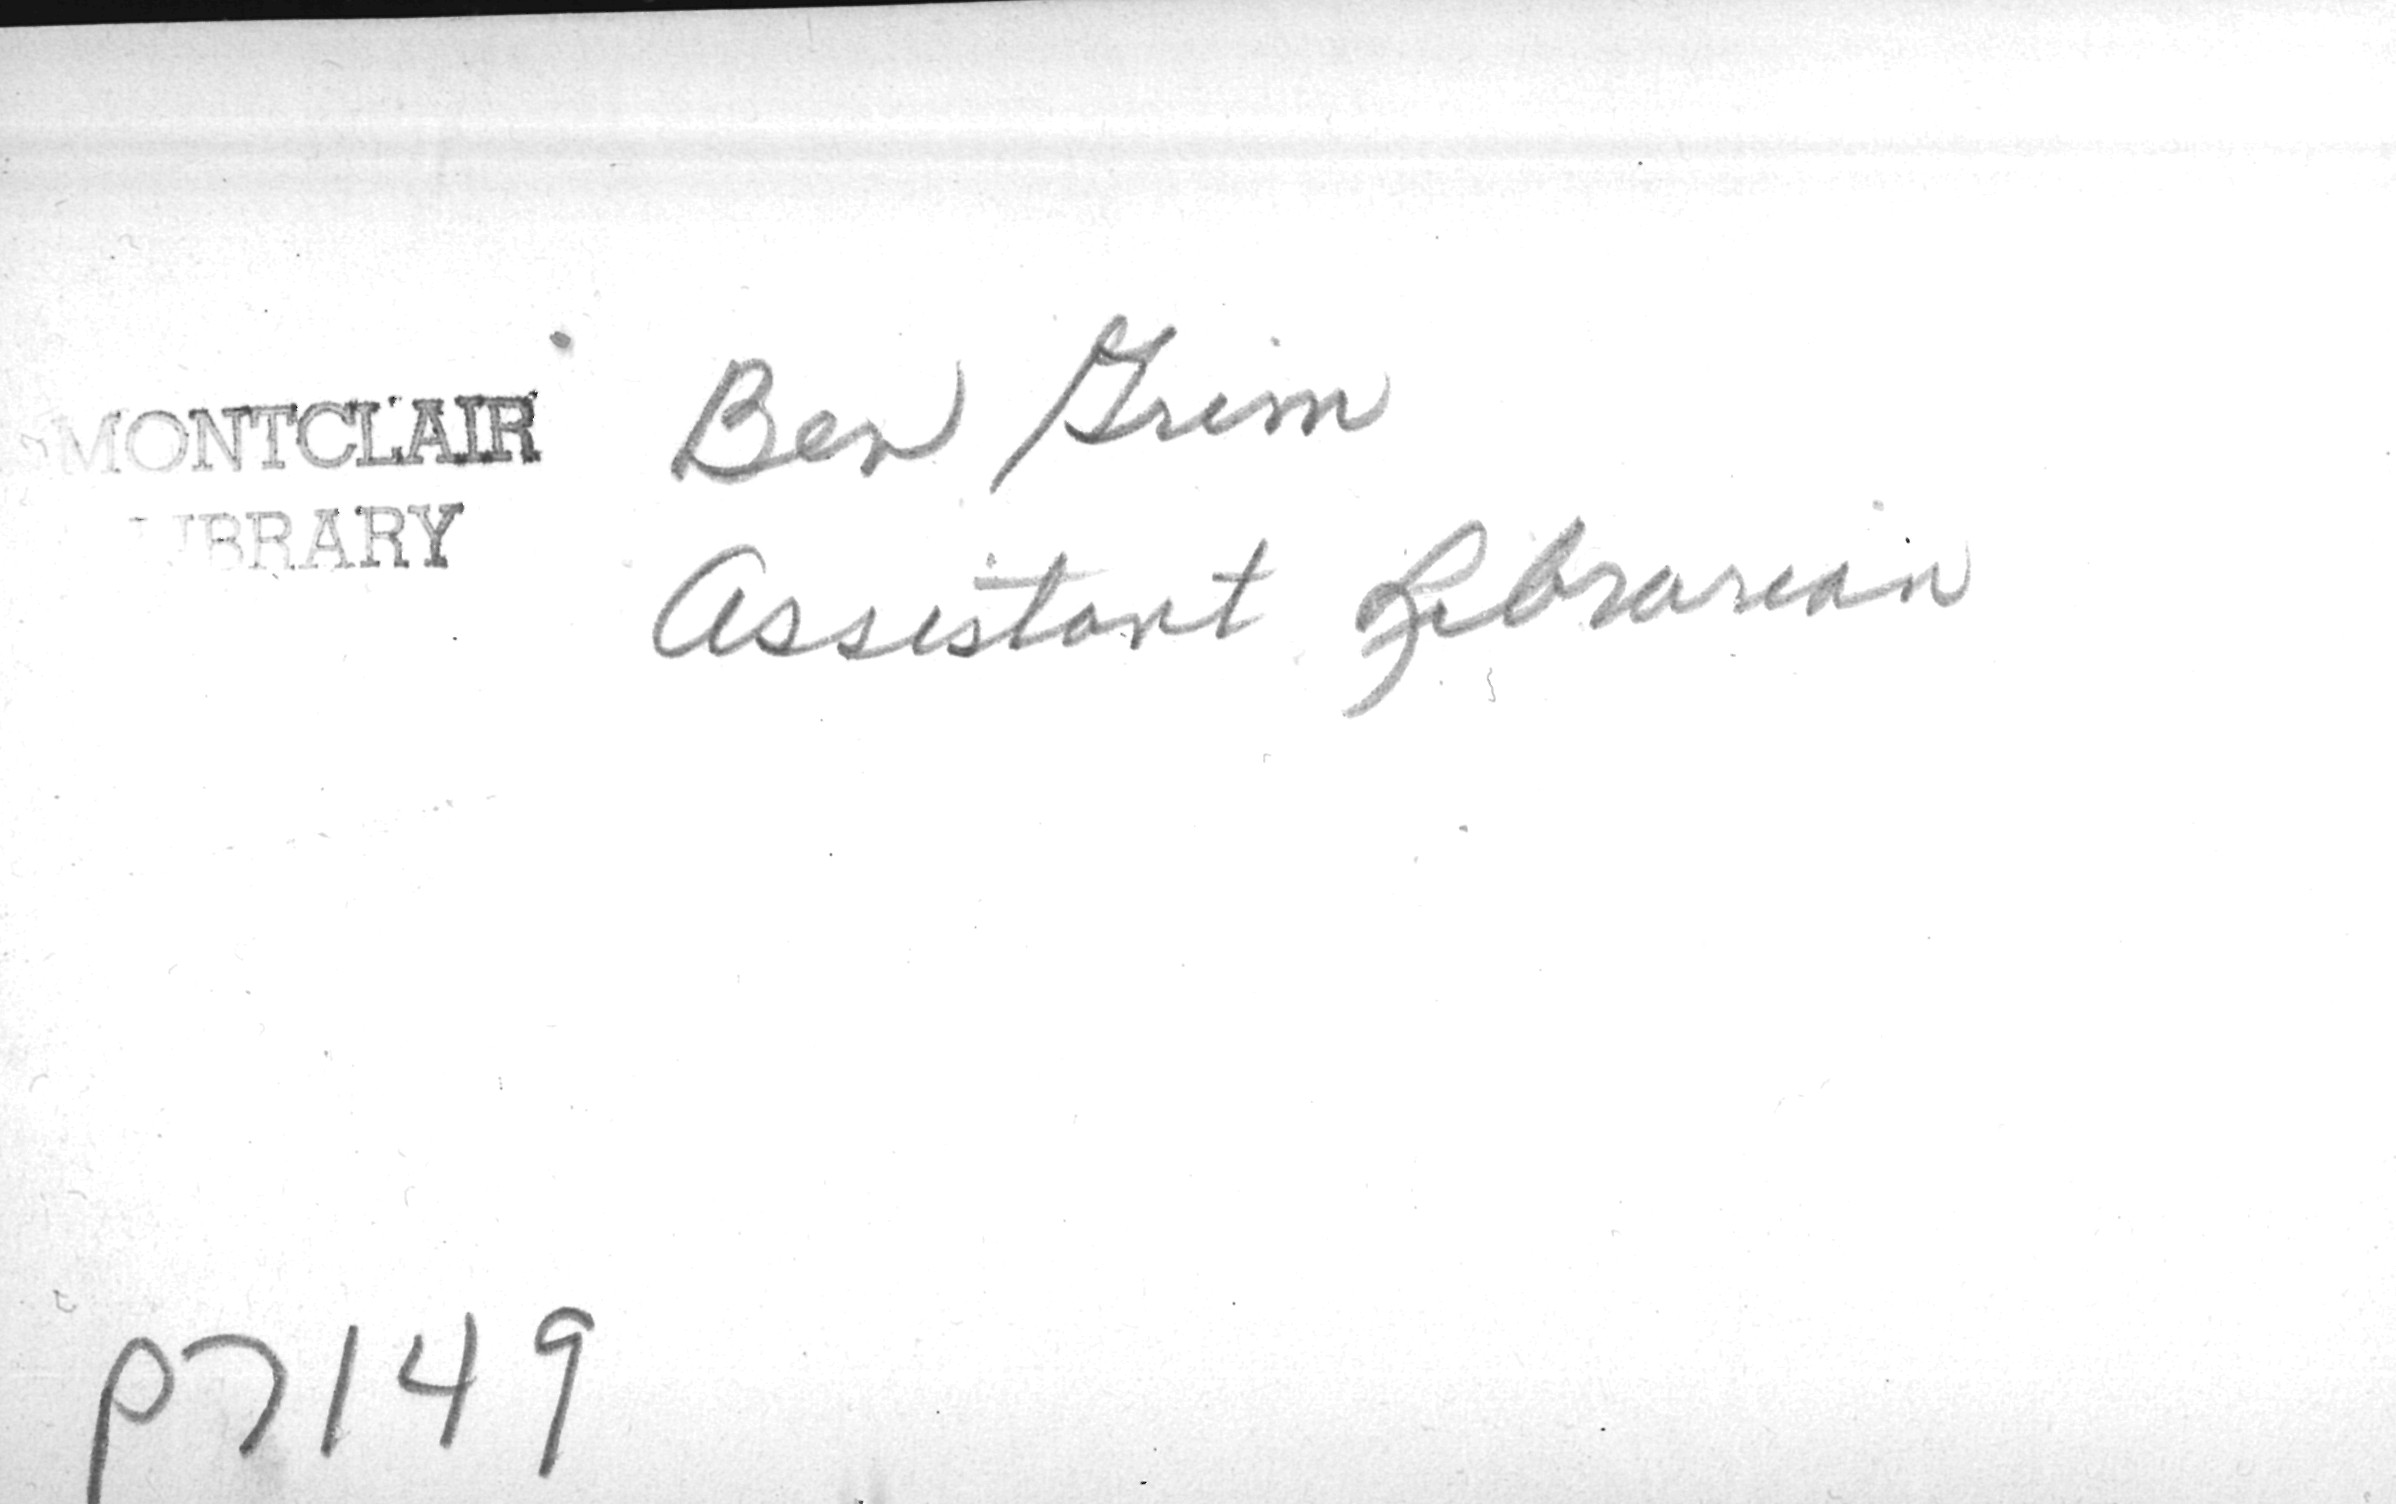 MONTCLAIR
LIBRARY
Ben Grim
Assistant Librarian
P7149